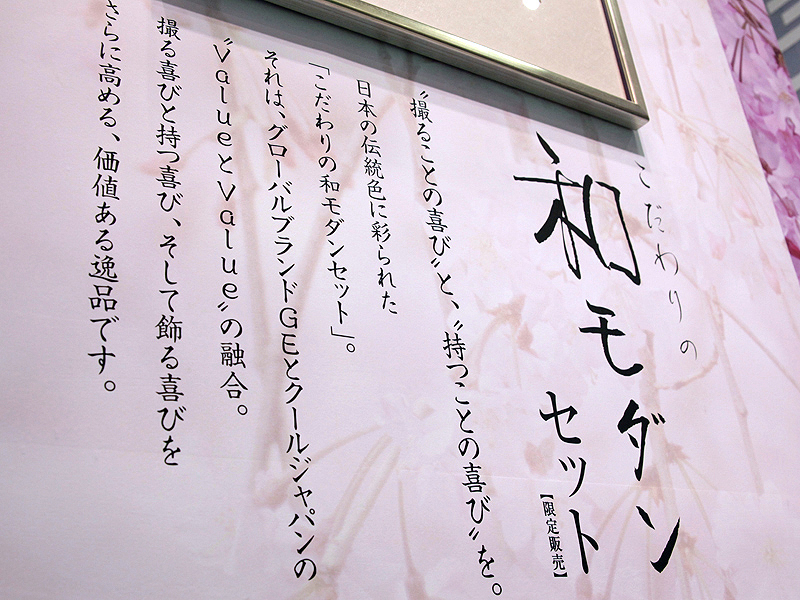 こだわりの
和モダン
セット
【限定販売】
〝撮ることの喜び〟と、〝持つことの喜び〟を。
日本の伝統色に彩られた
「こだわりの和モダンセット」。
それは、グローバルブランドGEとクールジャパンの
〝ValueとValue〟の融合。
撮る喜びと持つ喜び、そして飾る喜びを
さらに高める、価値ある逸品です。